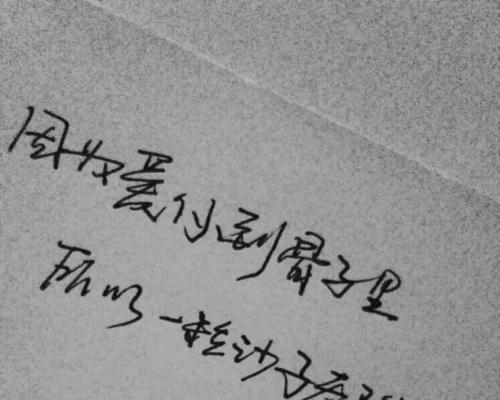 因为爱你到骨子里
所以一粒沙子